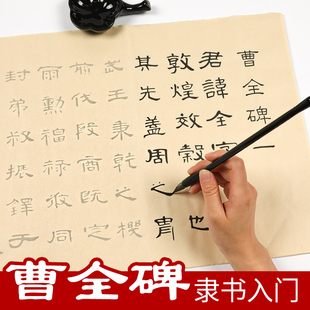 曹全碑一
君諱全字
敦煌效穀也
其先蓋周之胄
武王秉乾之機
前伐殷商既定
爾勳福祿攸同
封弟叔振鐸于
曹全碑 隶书入门